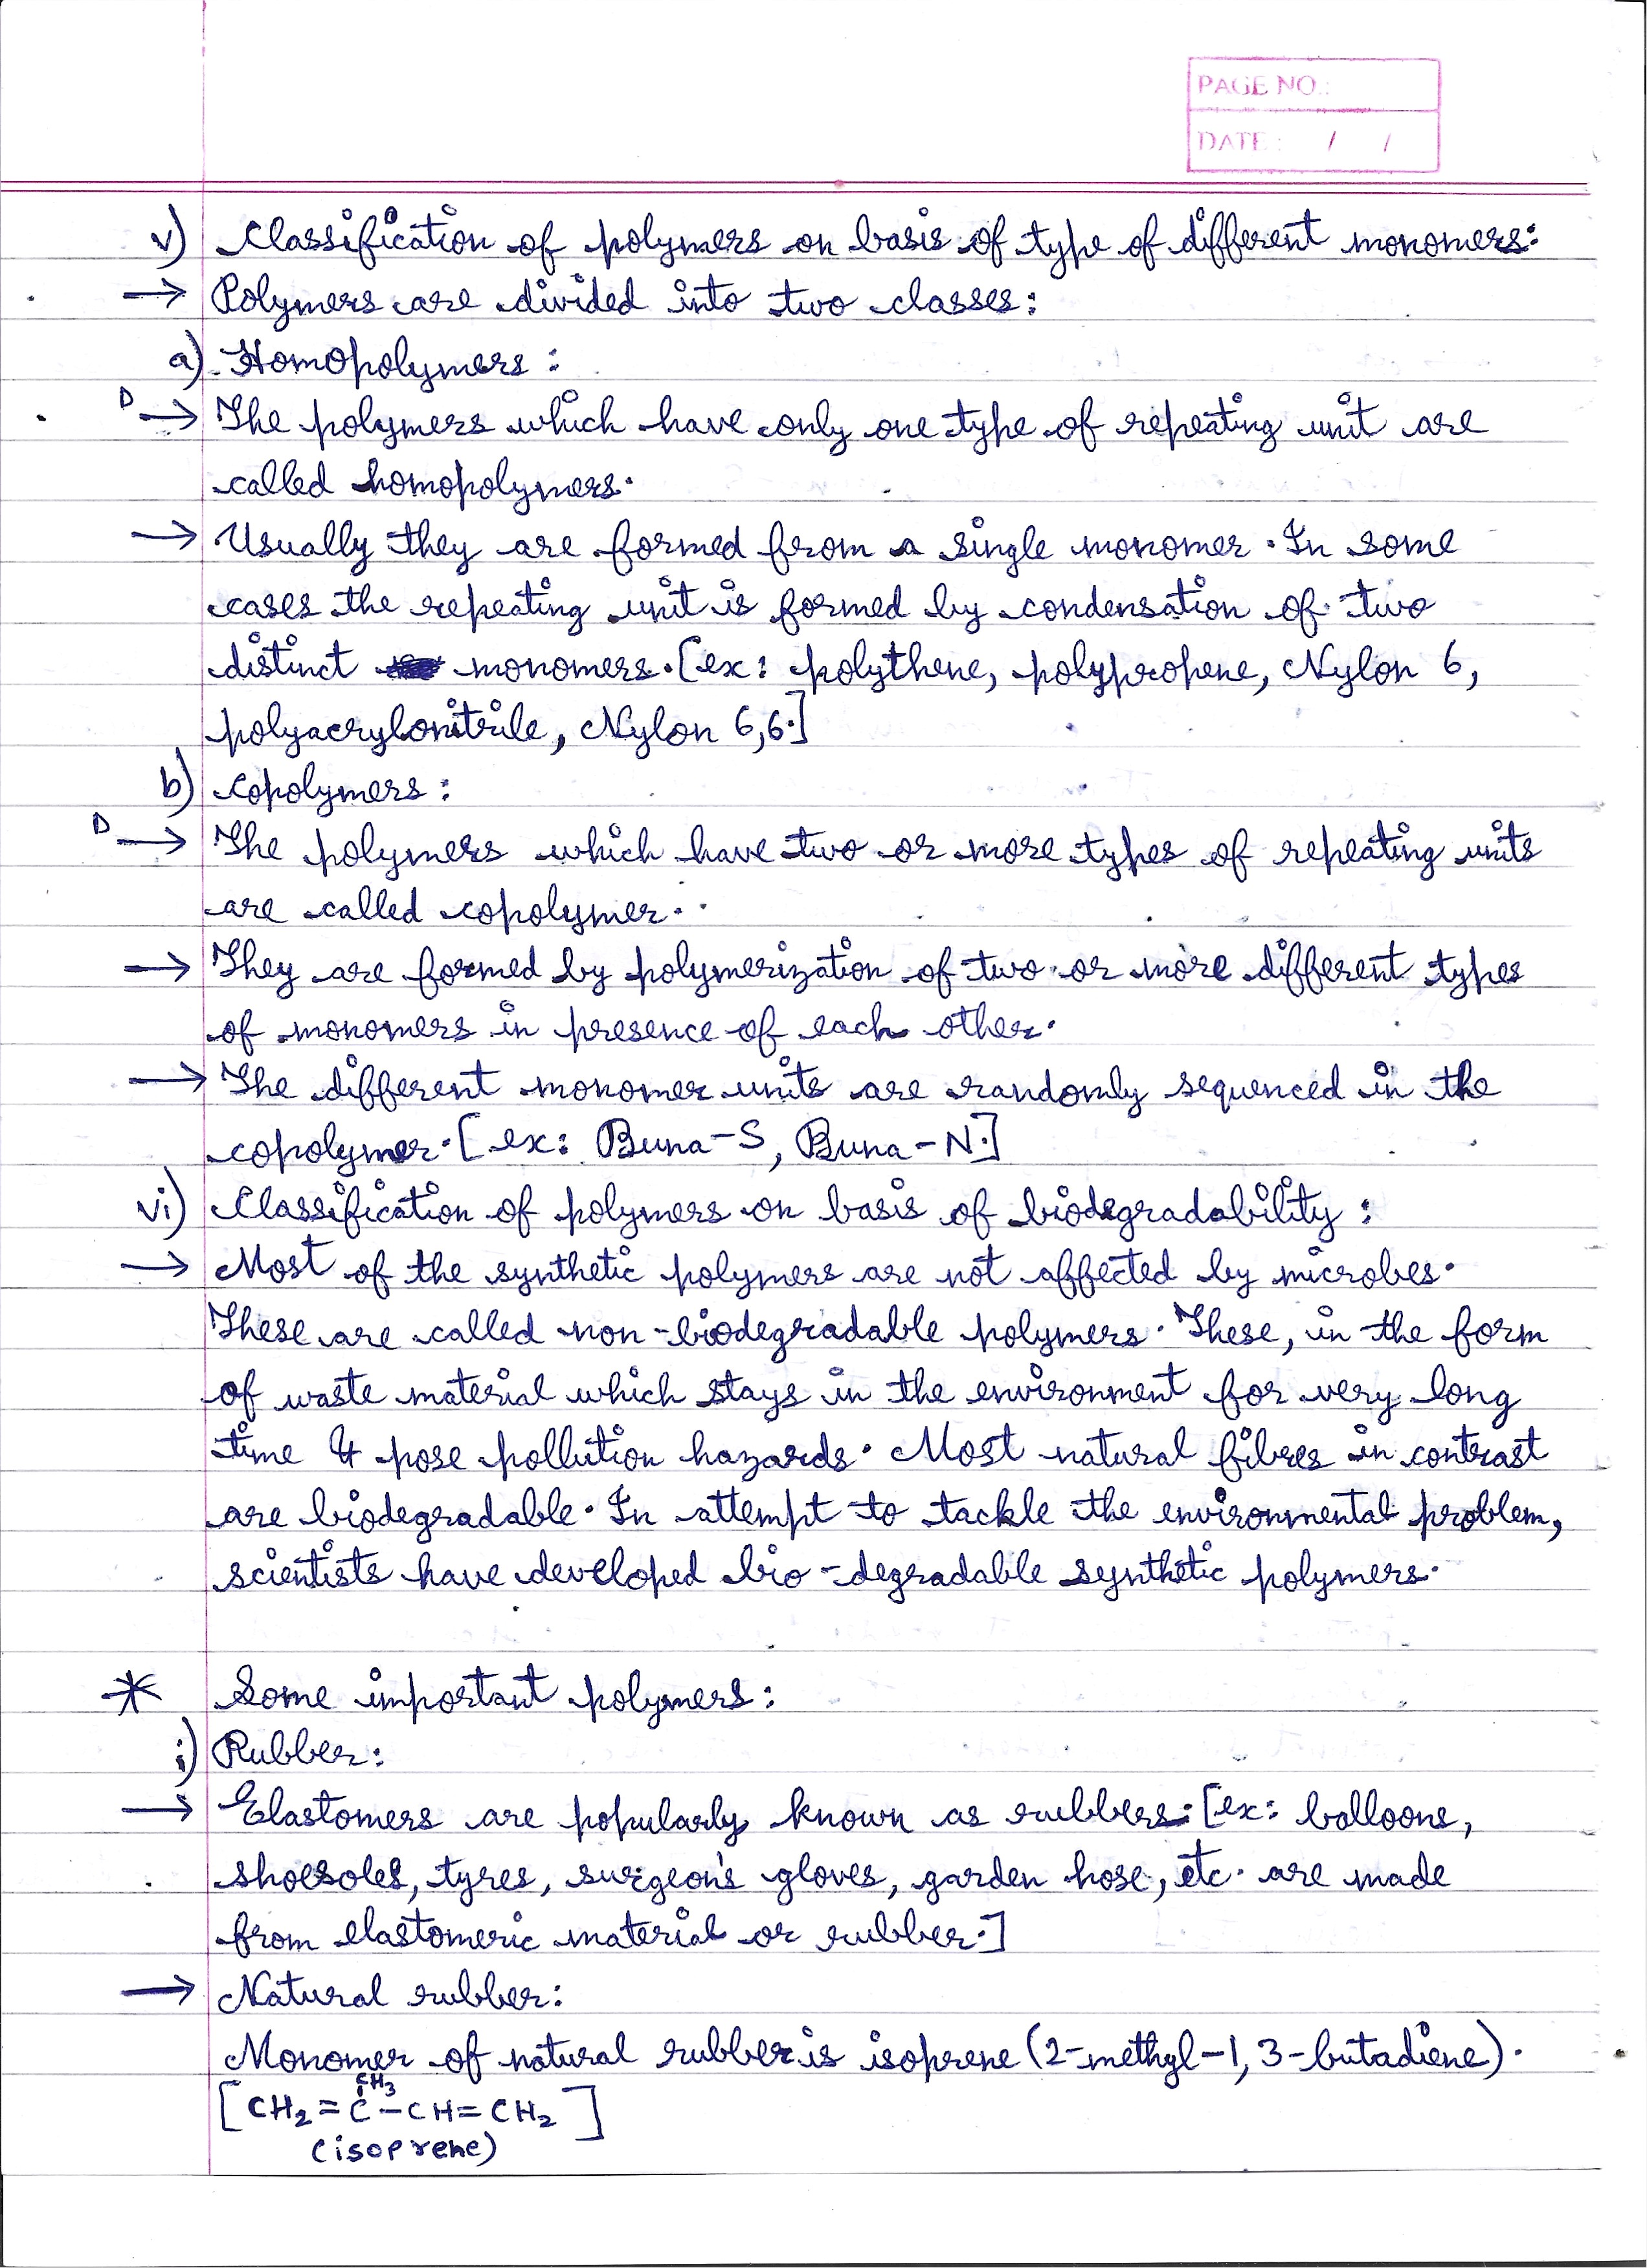 PAGE NO.:
DATE : / /
v) Classification of polymers on basis of type of different monomers:
→ Polymers are divided into two classes:
a) Homopolymers:
D → The polymers which have only one type of repeating unit are
called homopolymers.
→ Usually they are formed from a single monomer. In some
cases the repeating unit is formed by condensation of two
distinct monomers. [ex: polythene, polypropene, Nylon 6,
polyacrylonitrile, Nylon 6,6.]
b) Copolymers:
D → The polymers which have two or more types of repeating units
are called copolymer.
→ They are formed by polymerization of two or more different types
of monomers in presence of each other.
→ The different monomer units are randomly sequenced in the
copolymer. [ex: Buna-S, Buna-N.]
vi) Classification of polymers on basis of biodegradability:
→ Most of the synthetic polymers are not affected by microbes.
These are called non-biodegradable polymers. These, in the form
of waste material which stays in the environment for very long
time & pose pollution hazards. Most natural fibres in contrast
are biodegradable. In attempt to tackle the environmental problem,
scientists have developed bio-degradable synthetic polymers.
* Some important polymers:
i) Rubber:
→ Elastomers are popularly known as rubbers. [ex: balloons,
shoesoles, tyres, surgeon's gloves, garden hose, etc. are made
from elastomeric material or rubber.]
→ Natural rubber:
Monomer of natural rubber is isoprene (2-methyl-1,3-butadiene).
CH3
[CH2=C-CH=CH2]
(isoprene)